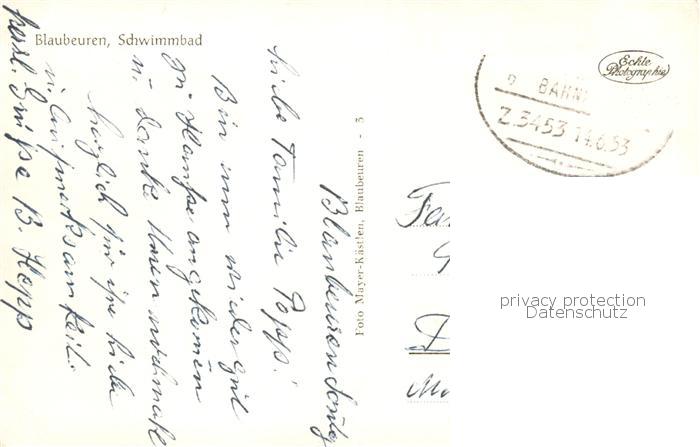 Blaubeuren, Schwimmbad
Echte
Photographie
BAHN
Z.3453 14.6.53
Blaubeuren Sonntag
Liebe Familie Popp!
Bin nun wieder gut
zu Hause angekommen
u. danke Ihnen nochmals
herzlich für ihre liebe
u. Aufmerksamkeit.
herzl. Grüße B. Hepp
Foto Mayer-Kästlen, Blaubeuren - 3
Fa
privacy protection
Datenschutz